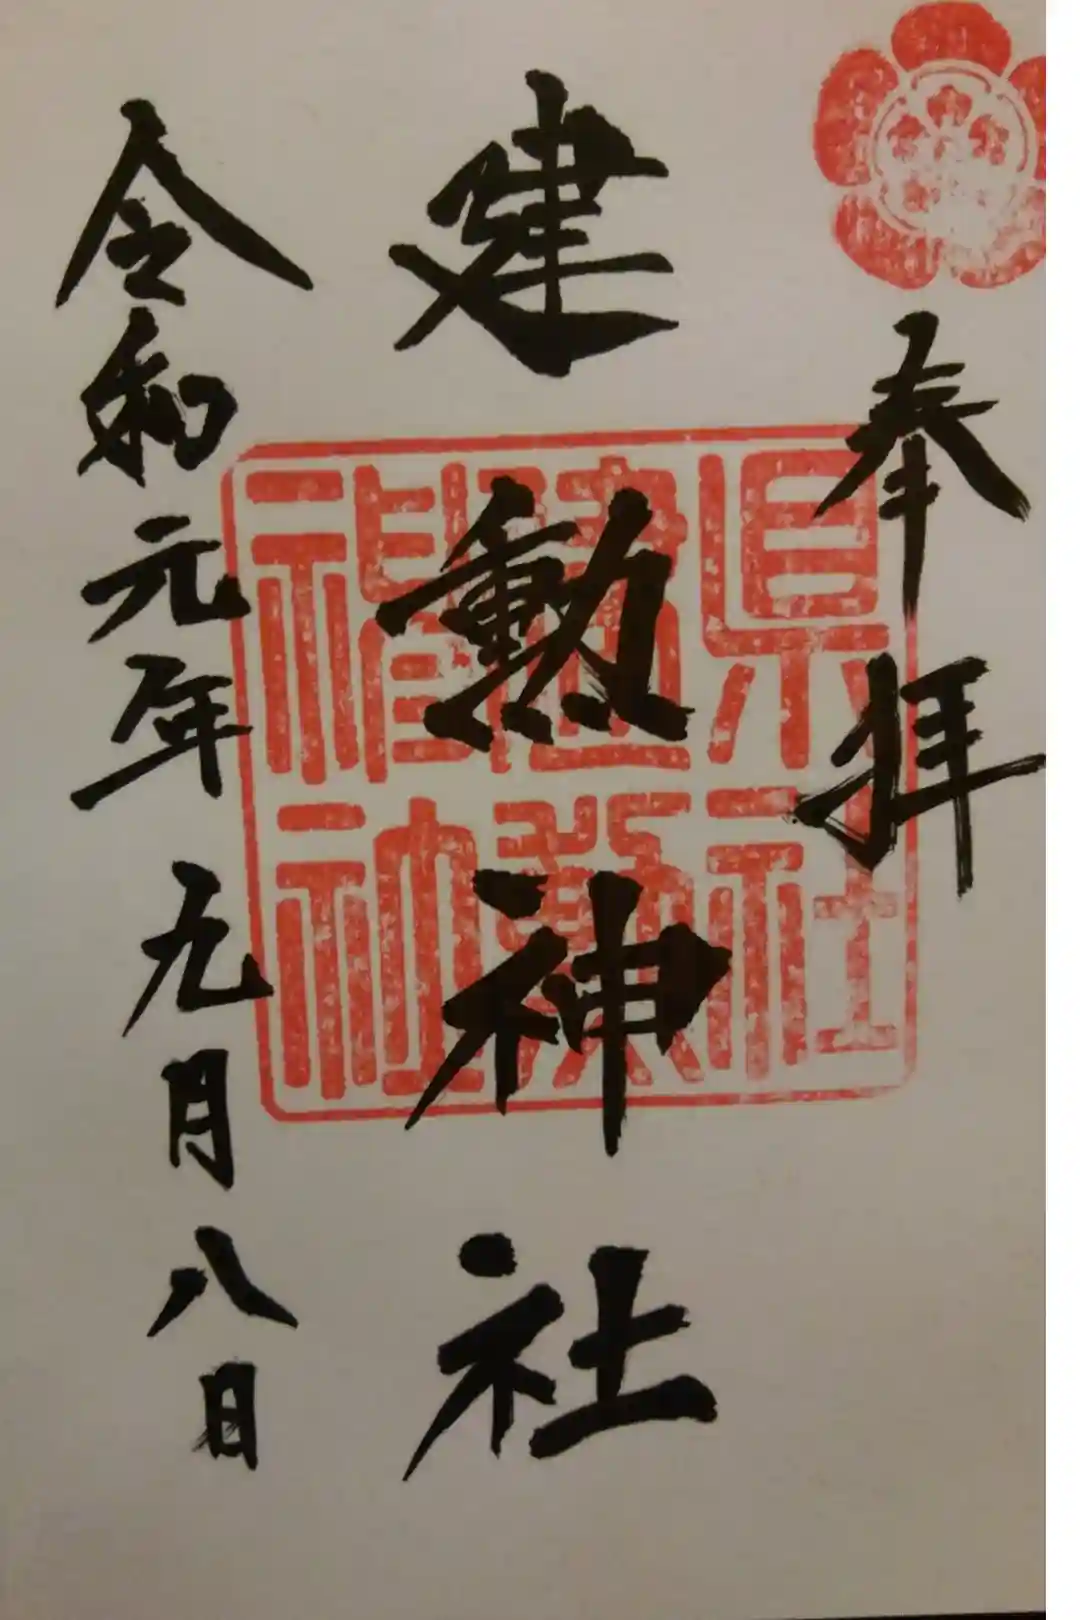 奉拝
建勲神社
令和元年九月八日
縣社
建勲
神社